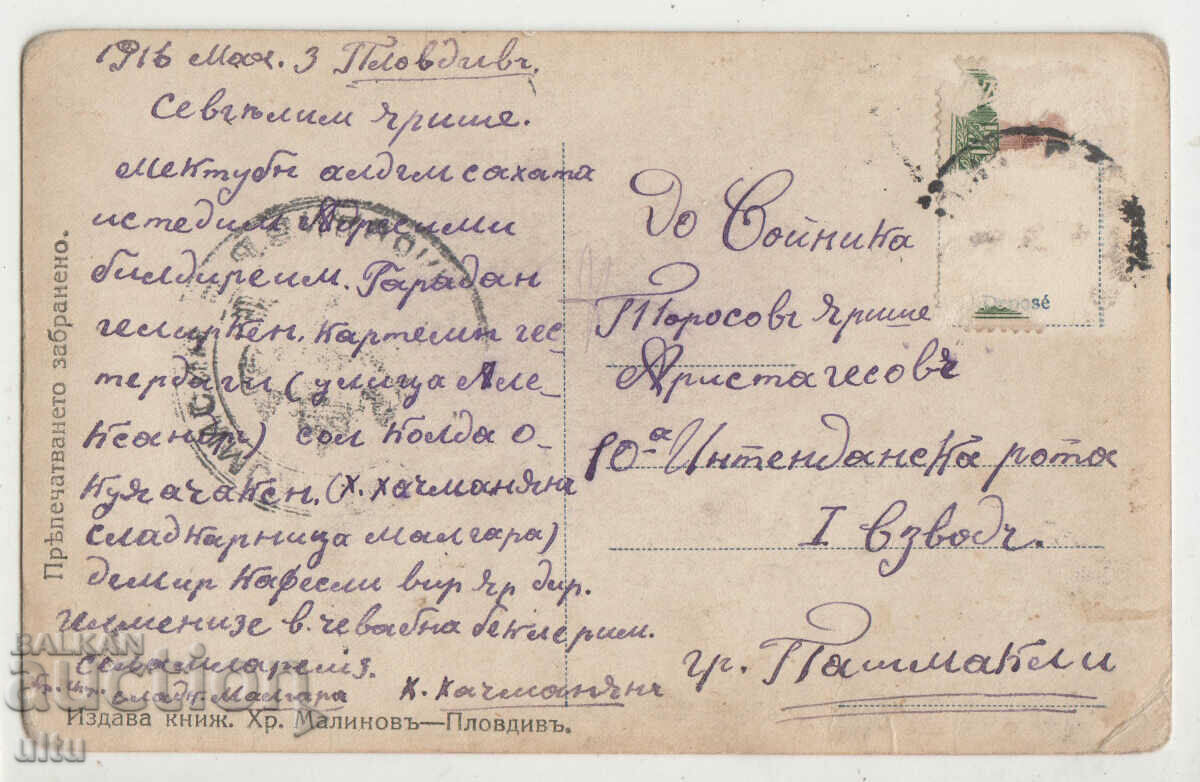 1916 Мая. 3 Пловдивъ.
Севгълим Ярише.
Мектубн алдгм сахата
истедим Адресими
билдиреим. Гарадан
гелиркен. картелин гес-
тердиги (улица Але-
ксандръ) сол колда о-
куячакен. (Х. Хачманянъ
сладкарница Малгара)
демир кафесли вир яр дир.
гелменизе в. чевабна беклерим.
селямларемз.
сладк Малгара Х. Хачманянъ
До Войника
Торосовъ Ярише
Аристагесовъ
10-а Интенданска рота
I взводъ.
гр. Пашмакли
Прѣпечатването забранено.
Издава книж. Хр. Малиновъ—Пловдивъ.
Deposé
BALKAN
auction
ultu